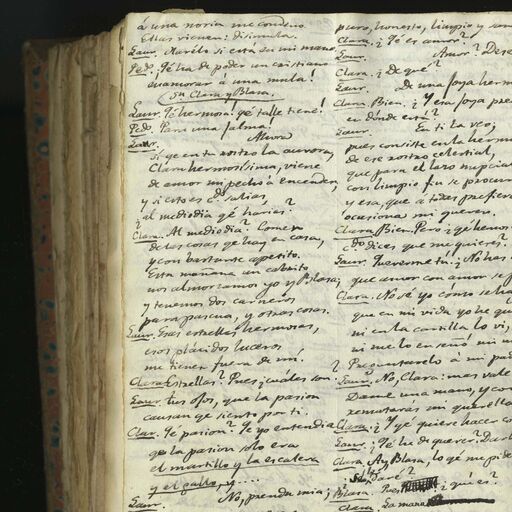 á una noria me condeno
Ellas vienen: disimula.
Laur. Harélo si está en mi mano.
Pedo. Qé ha de poder un cristiano
enamorar á una mula!
Sn. Clara y Blasa.
Laur. Qé hermosa! qé talle tiene!
Pedo. Para una jalma.
Laur. Ahora
si ye en tu rostro la aurora,
Clara hermosísima, viene
de amor mi pecho á encender,
y si esto es cdo. salias,
al mediodia qé harias?
Clara. Al mediodia? Comer
de las cosas qe hay en casa,
y con bastante apetito.
Esta mañana un cabrito
nos almorzamos yo y Blasa;
y tenemos dos carneros
para pascua, y otras cosas.
Laur. Esas estrellas hermosas,
esos plácidos luceros
me tienen fuera de mí.
Clara. Estrellas? Pues ¿cuáles son?
Laur. tus ojos, que la pasion
causan qe siento por ti.
Clar. Qé pasion? Yo entendia
qe la pasion sólo era
el martillo y la escalera
y el gallo, y....
Laur. No, prenda mia;
puro, honesto, limpio y
Clara. ¿Qé es amor?
Laur. Amor? Dese
Clara. ¿De qé?
Laur. De una joya herm
Clara. Bien. ¿Y esa joya pre
en dónde está?
Laur. En ti la veo;
pues consiste en la herm
de ese rostro celestial,
que para el lazo nupcial
con limpio fin se procur
y esa, que á todas prefier
ocasiona mi querer.
Clara. Bien. Pero ¿qé hemos
cdo. dices que me quieres?
Laur. Quererme tú! ¿No has
que amor con amor se p
Clara. No sé yo cómo se ha
que en mi vida yo he qu
ni en la cartilla lo vi,
ni me lo enseñó mi m
Preguntarelo á mi pad
Laur. No, Clara: mas vale
Dame una mano, y con
rematarás mi querella
Clara. ¿Y qé quiere hacer co
Laur. ¿Qé he de querer? Darl
Clara. Ay, Blasa, lo qé me pide
Daré?
Blasa. Pues, ¿qué es?
Clara. La mano